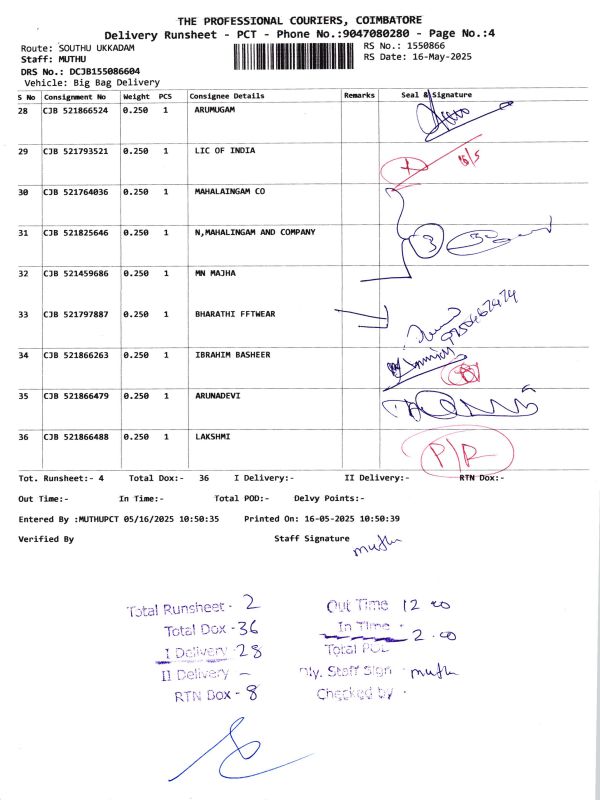 THE PROFESSIONAL COURIERS, COIMBATORE
Delivery Runsheet - PCT - Phone No.:9047080280 - Page No.:4
Route: SOUTHU UKKADAM
RS No.: 1550866
Staff: MUTHU
RS Date: 16-May-2025
DRS No.: DCJB155086604
Vehicle: Big Bag Delivery
S No Consignment No Weight PCS Consignee Details Remarks Seal & Signature
28 CJB 521866524 0.250 1 ARUMUGAM
29 CJB 521793521 0.250 1 LIC OF INDIA
16/5
30 CJB 521764036 0.250 1 MAHALAINGAM CO
31 CJB 521825646 0.250 1 N,MAHALINGAM AND COMPANY
3
32 CJB 521459686 0.250 1 MN MAJHA
33 CJB 521797887 0.250 1 BHARATHI FFTWEAR
34 CJB 521866263 0.250 1 IBRAHIM BASHEER
35 CJB 521866479 0.250 1 ARUNADEVI
36 CJB 521866488 0.250 1 LAKSHMI
P/R
Tot. Runsheet:- 4 Total Dox:- 36 I Delivery:- II Delivery:- RTN Dox:-
Out Time:- In Time:- Total POD:- Delvy Points:-
Entered By :MUTHUPCT 05/16/2025 10:50:35 Printed On: 16-05-2025 10:50:39
Verified By Staff Signature muthu
Total Runsheet - 2 Out Time 12 00
Total Dox - 36 In Time - 2.00
I Delivery - 28 Total POD
II Delivery - Dly. Staff Sign - muthu
RTN Dox - 8 Checked by -